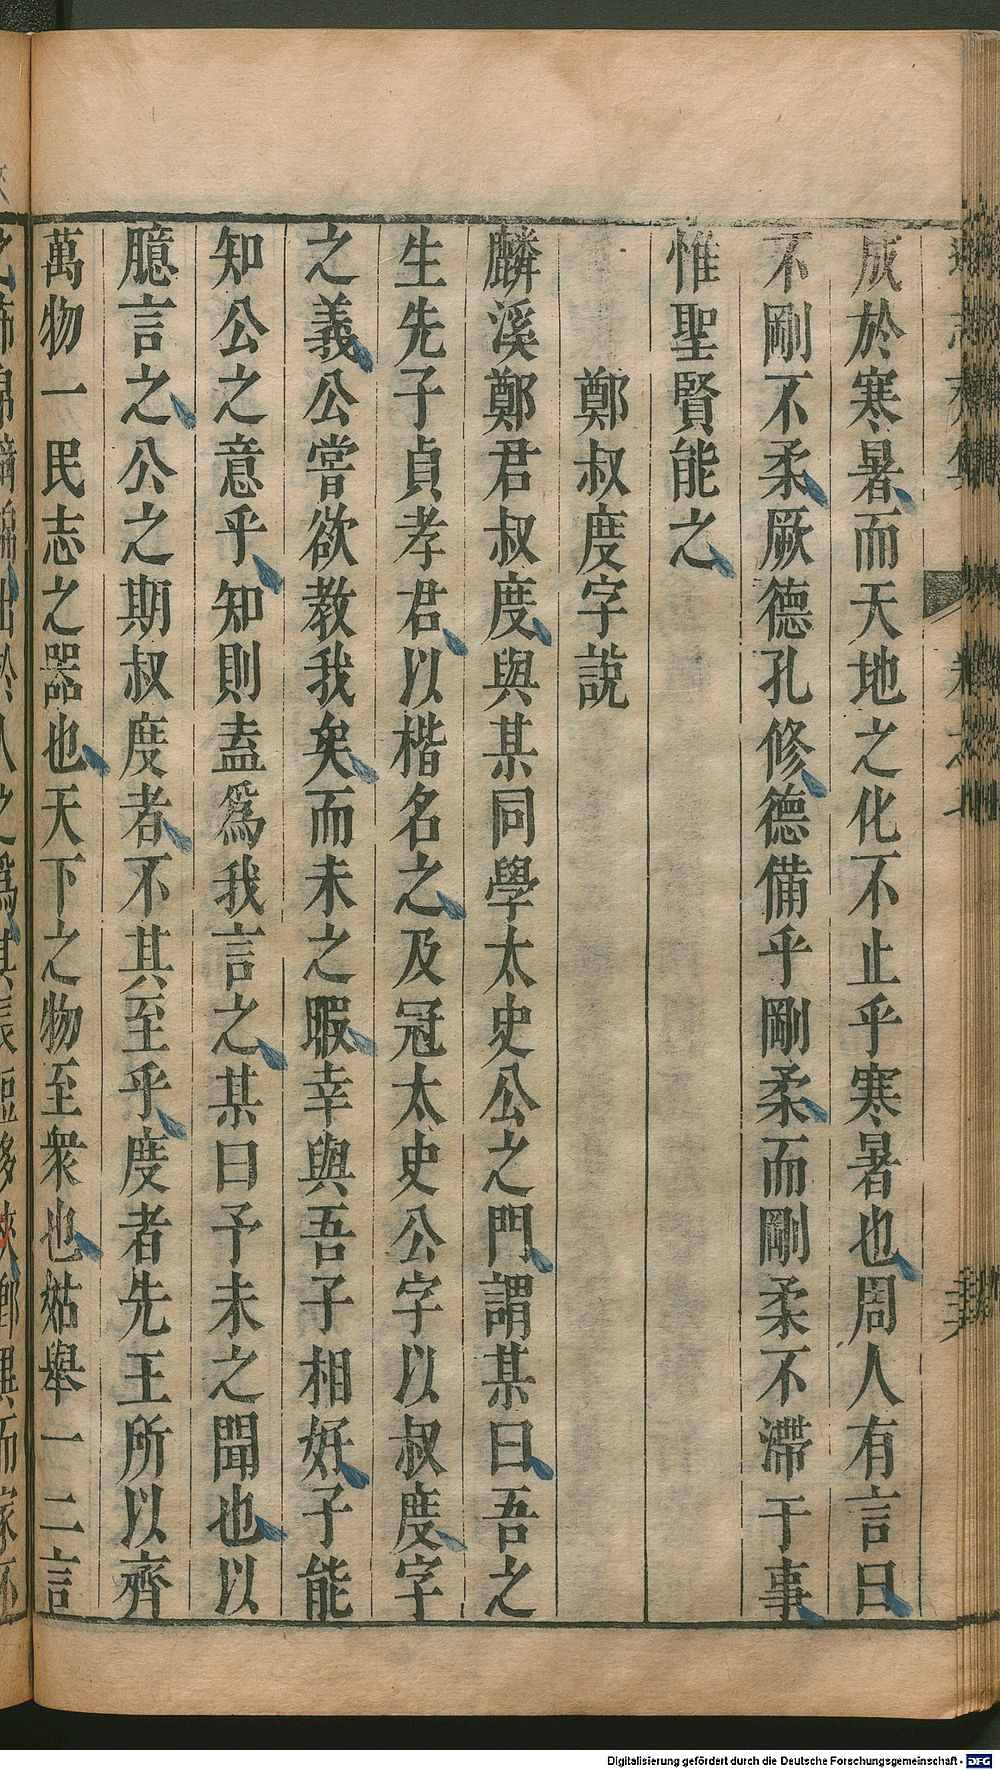 成於寒暑而天地之化不止乎寒暑也周人有言曰
不剛不柔厥德孔修德備乎剛柔而剛柔不滯于事
惟聖賢能之
鄭叔度字說
麟溪鄭君叔度與某同學太史公之門謂某曰吾之
生先子貞孝君以楷名之及冠太史公字以叔度字
之義公嘗欲教我矣而未之暇幸與吾子相好子能
知公之意乎知則盍爲我言之某曰予未之聞也以
臆言之公之期叔度者不其至乎度者先王所以齊
萬物一民志之器也天下之物至衆也姑舉一二言
Digitalisierung gefördert durch die Deutsche Forschungsgemeinschaft - DFG